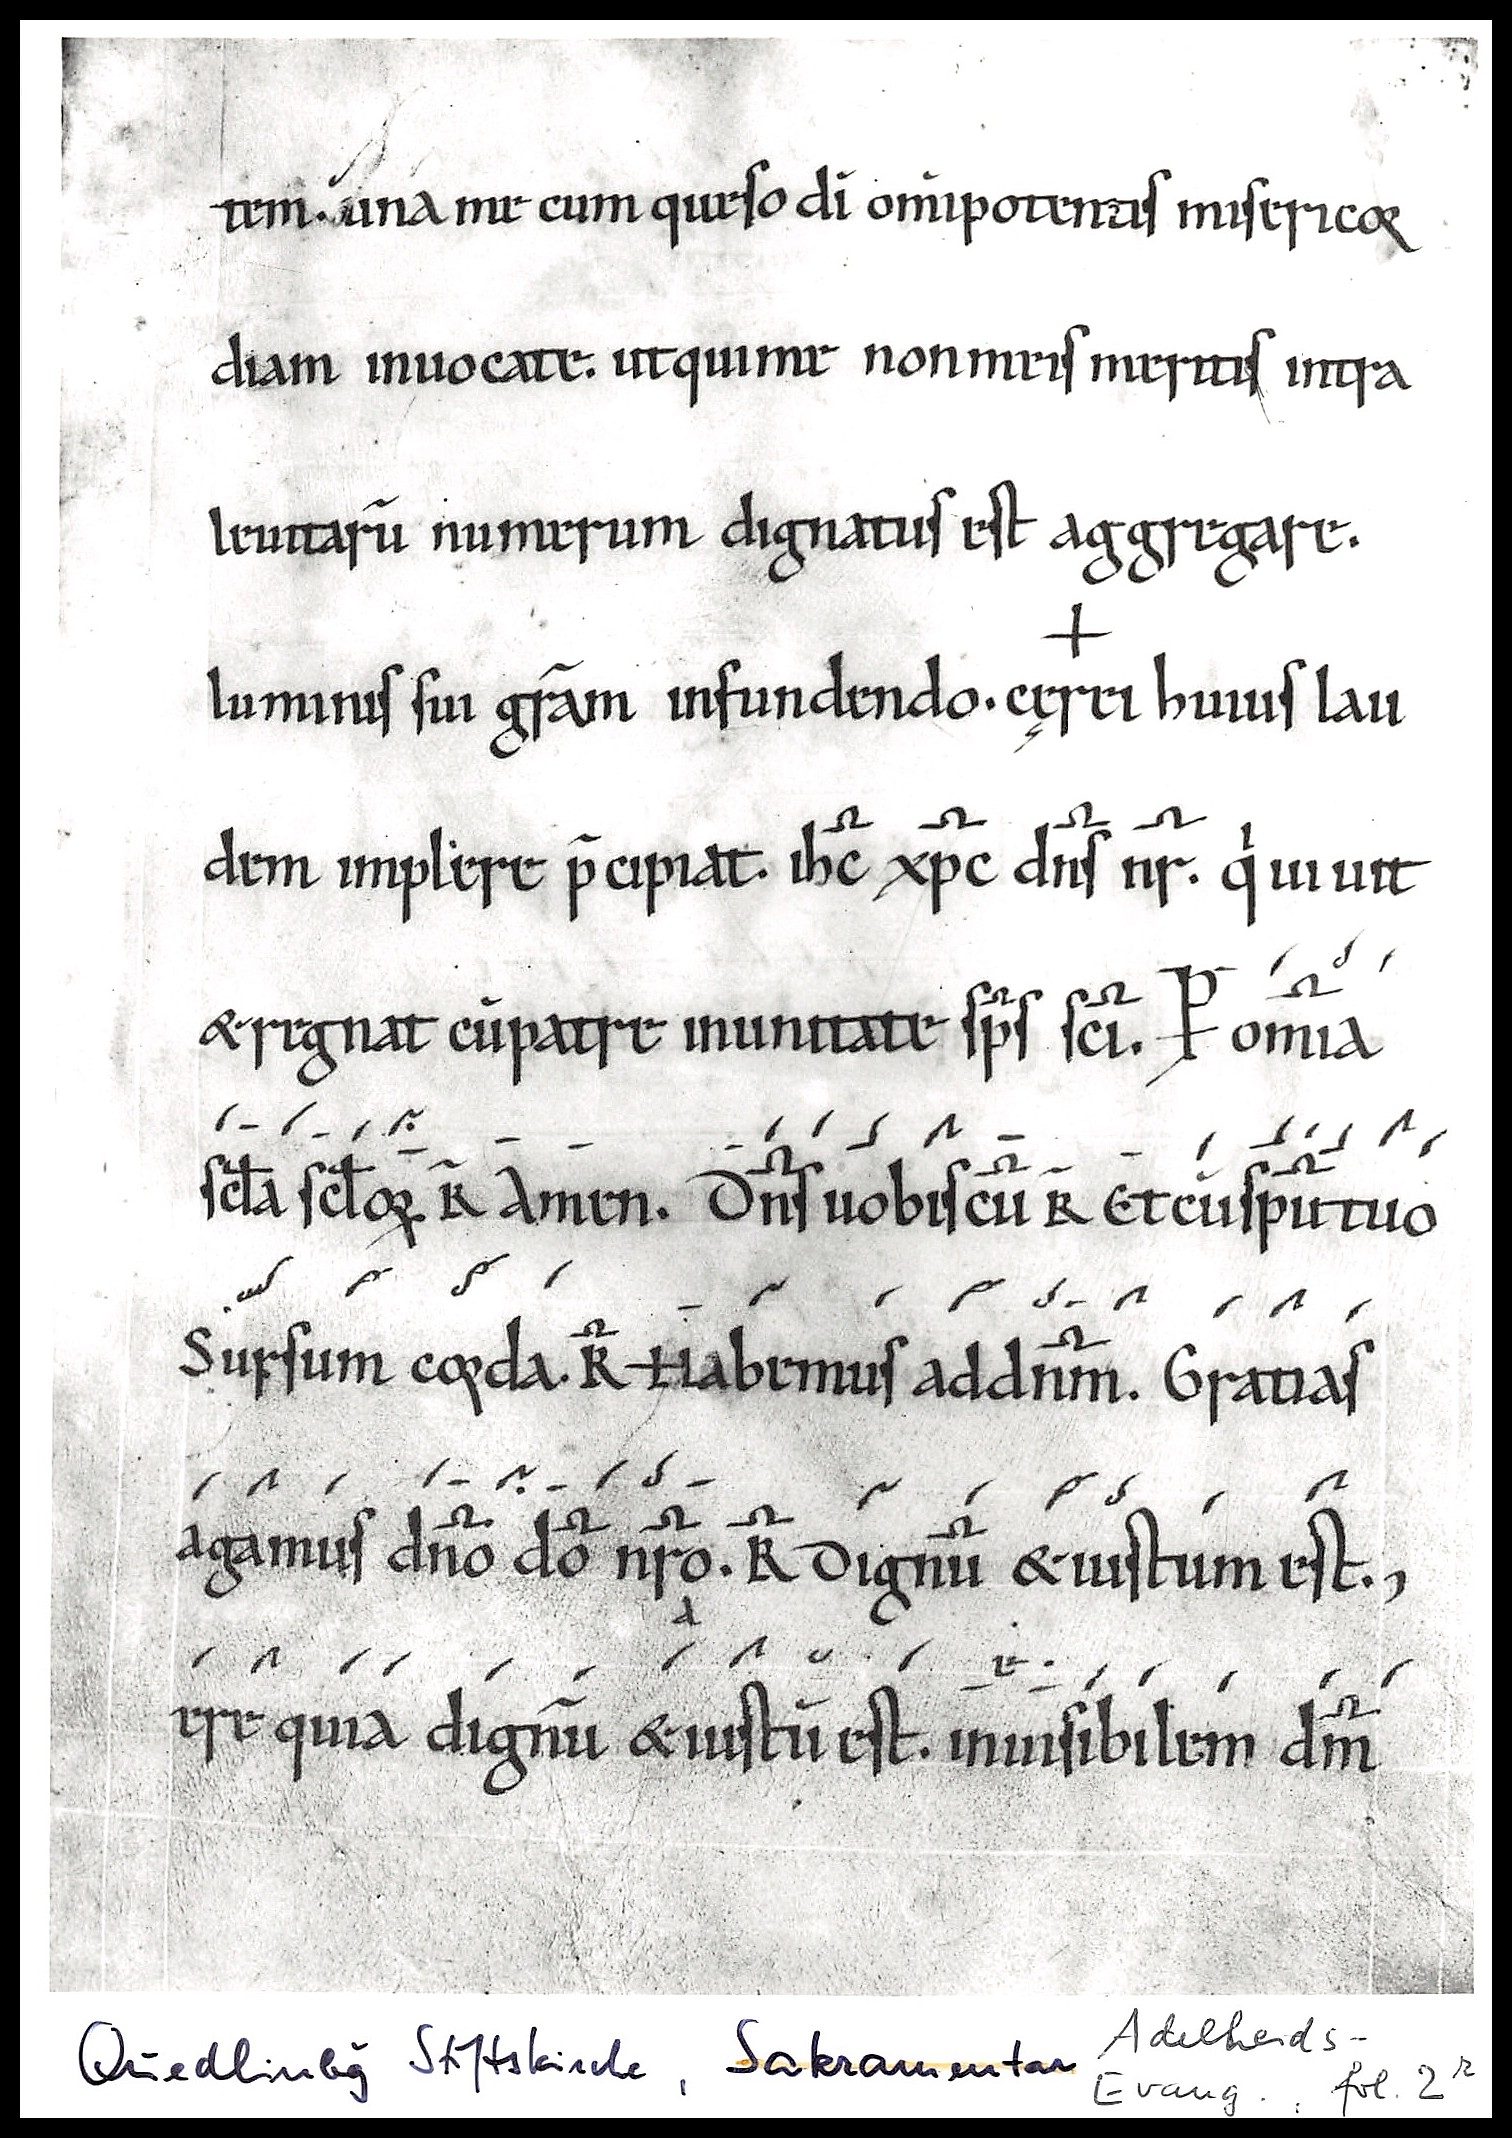 tem. una me cum queso dī om̄ipotentis misericor
diam inuocate. ut qui me non meis meritis intra
leuitarū numerum dignatus est aggregare.
luminis sui gr̄am infundendo. cęrei huius lau
dem implere p̄cipiat. ih̄c xp̄c dn̄s nr̄. qͥ uiuit
& regnat cū patre in unitate sp̄s sc̄i. P om̄ia
scl̄a scl̄oꝝ. R̄ Amen. Dn̄s uobiscū R̄ Et cū spū tuo
Sursum corda. R̄ Habemus ad dn̄m. Gratias
agamus dn̄o dō nr̄o. R̄ Dignū & iustum est.,
ere quia dignū & iustū est. inuisibilem dm̄
Quedlinbḡ Stiftskirche, Sakramentar
Adelheids-
Evang., fol. 2r